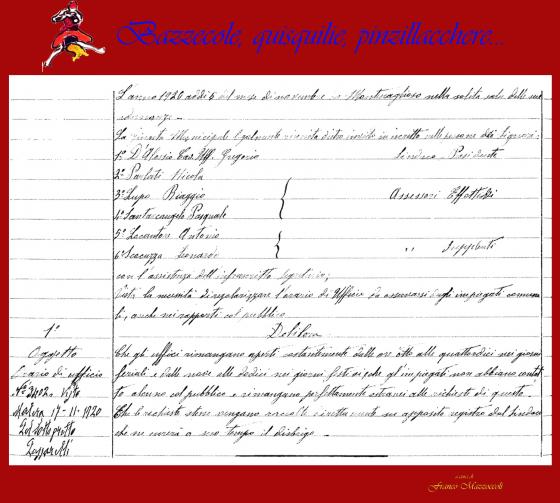 Bazzecole, quisquilie, pinzillacchere...
L'anno 1920 addì 5 del mese di novembre in Montescaglioso nella solita sala delle sue
adunanze.
La Giunta Municipale riunita dietro invito in iscritto nelle persone dei Signori:
1° D'Alessio Cav. Uff. Gregorio Sindaco - Presidente
2° Parlati Nicola
3° Lupo Biaggio Assessori Effettivi
4° Santarcangelo Pasquale
5° Locantore Antonio
6° Scocuzza Leonardo " Supplenti
con l'assistenza dell'infrascritto Segretario;
Vista la necessità di regolarizzare l'orario di Ufficio da osservarsi dagli impiegati comuna
li, anche nei rapporti col pubblico
Delibera
1°
Oggetto
Orario di ufficio
N° 2402. Visto
Matera 17-11-1920
Il Sottoprefetto
Che gli uffici rimangano aperti dalle ore otto alle quattordici nei giorni
feriali e dalle nove alle dodici nei giorni festivi e che gl'impiegati non abbiano contat
to alcuno col pubblico e rimangano perfettamente estranei alle richieste di questo.
Che le richieste stesse vengano direttamente in apposito registro dal Sindaco
che ne curerà a suo tempo il disbrigo.
a cura di
Franco Mazzoccoli